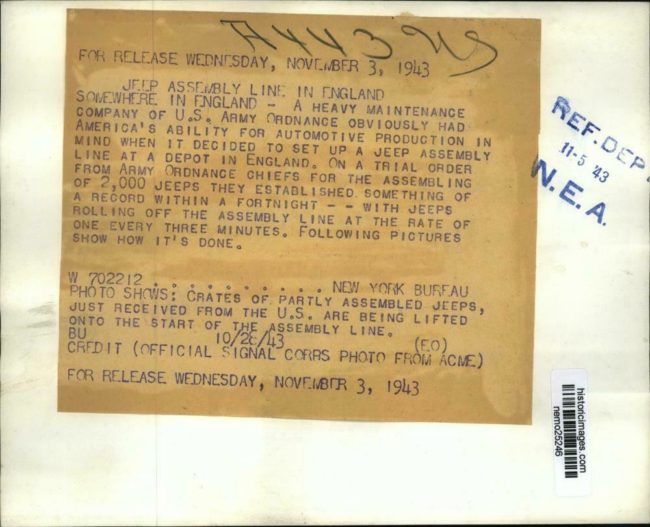 A443 US
FOR RELEASE WEDNESDAY, NOVEMBER 3, 1943
JEEP ASSEMBLY LINE IN ENGLAND
SOMEWHERE IN ENGLAND - A HEAVY MAINTENANCE
COMPANY OF U.S. ARMY ORDNANCE OBVIOUSLY HAD
AMERICA'S ABILITY FOR AUTOMOTIVE PRODUCTION IN
MIND WHEN IT DECIDED TO SET UP A JEEP ASSEMBLY
LINE AT A DEPOT IN ENGLAND. ON A TRIAL ORDER
FROM ARMY ORDNANCE CHIEFS FOR THE ASSEMBLING
OF 2,000 JEEPS THEY ESTABLISHED SOMETHING OF
A RECORD WITHIN A FORTNIGHT -- WITH JEEPS
ROLLING OFF THE ASSEMBLY LINE AT THE RATE OF
ONE EVERY THREE MINUTES. FOLLOWING PICTURES
SHOW HOW IT'S DONE.
W 702212 . . . . . . . . . . NEW YORK BUREAU
PHOTO SHOWS: CRATES OF PARTLY ASSEMBLED JEEPS,
JUST RECEIVED FROM THE U.S. ARE BEING LIFTED
ONTO THE START OF THE ASSEMBLY LINE.
BU 10/26/43 (EO)
CREDIT (OFFICIAL SIGNAL CORRS PHOTO FROM ACME)
FOR RELEASE WEDNESDAY, NOVEMBER 3, 1943
REF. DEPT
11-5 43
N.E.A.
historicimages.com
nemo25246